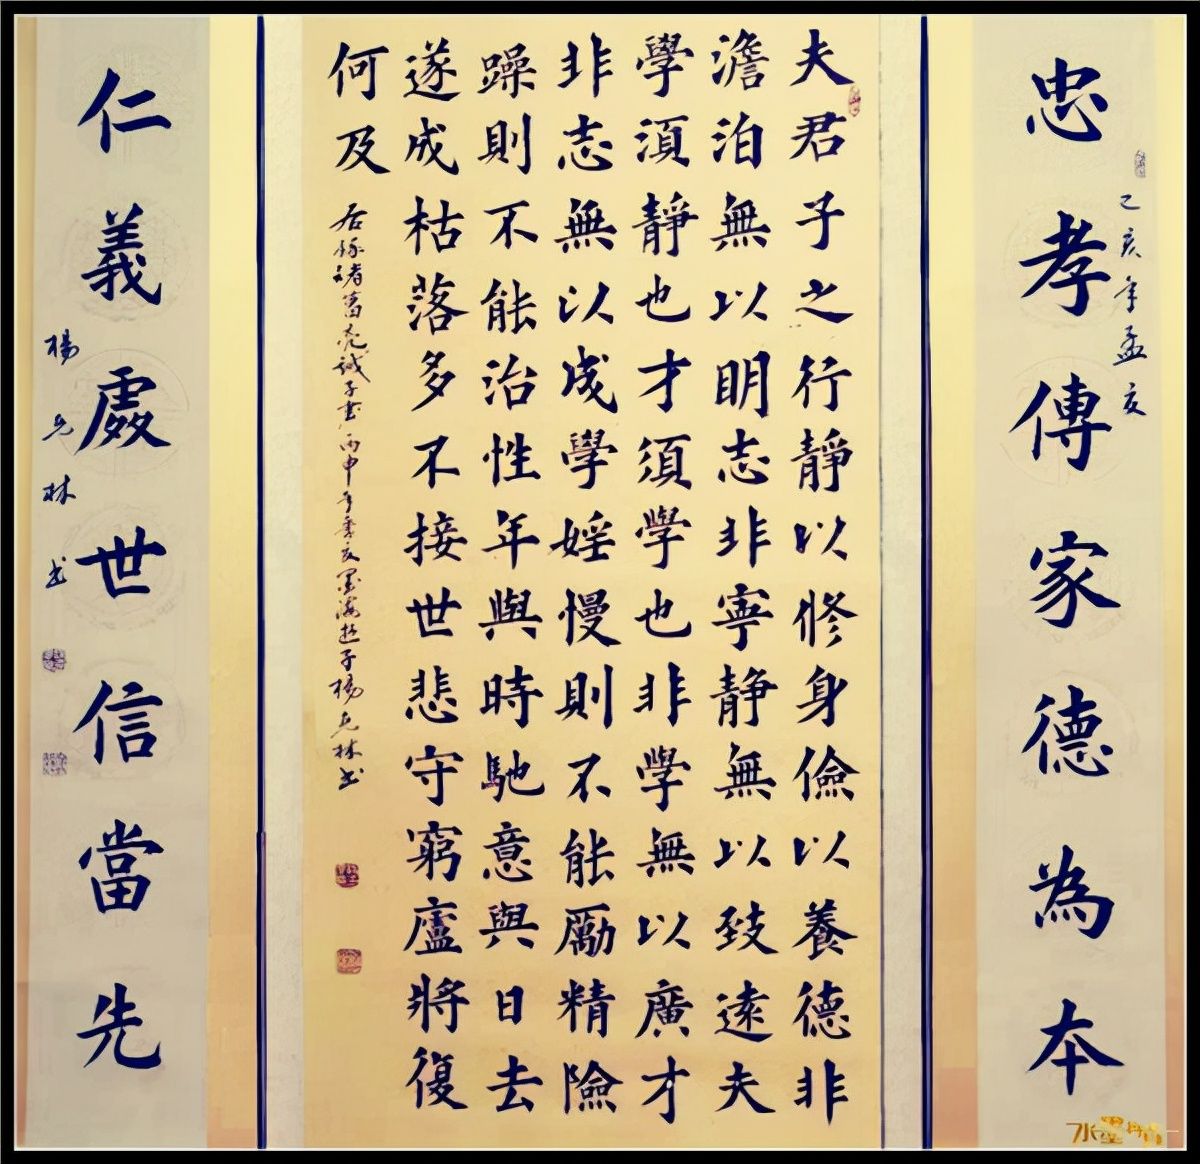 忠孝傳家德為本
己亥年孟夏
夫君子之行靜以修身儉以養德非
澹泊無以眀志非寧靜無以致遠夫
學湏靜也才須學也非學無以廣才
非志無以成學婬慢則不能勵精險
躁則不能治性年與時馳意與日去
遂成枯落多不接世悲守窮廬將復
何及
右錄諸葛亮誡子書丙申年季夏墨海遊子楊克林書
仁義處世信當先
楊克林書